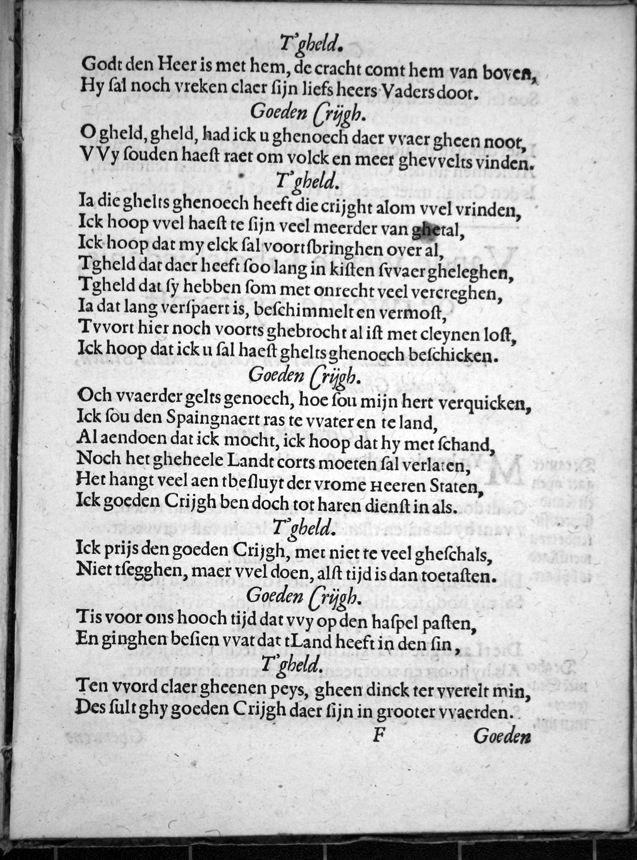 T'gheld.
Godt den Heer is met hem, de cracht comt hem van boven,
Hy ſal noch vreken claer ſijn liefs heers Vaders doot.
Goeden Crijgh.
O gheld, gheld, had ick u ghenoech daer vvaer gheen noot,
VVy ſouden haeſt raet om volck en meer ghevvelts vinden.
T'gheld.
Ia die ghelts ghenoech heeft die crijght alom vvel vrinden,
Ick hoop vvel haeſt te ſijn veel meerder van ghetal,
Ick hoop dat my elck ſal voortſbringhen over al,
Tgheld dat daer heeft ſoo lang in kiſten ſvvaer gheleghen,
Tgheld dat ſy hebben ſom met onrecht veel vercreghen,
Ia dat lang verſpaert is, beſchimmelt en vermoſt,
Tvvort hier noch voorts ghebrocht al iſt met cleynen loſt,
Ick hoop dat ick u ſal haeſt ghelts ghenoech beſchicken.
Goeden Crijgh.
Och vvaerder gelts genoech, hoe ſou mijn hert verquicken,
Ick ſou den Spaingnaert ras te vvater en te land,
Al aendoen dat ick mocht, ick hoop dat hy met ſchand,
Noch het gheheele Landt corts moeten ſal verlaten,
Het hangt veel aen tbeſluyt der vrome Heeren Staten,
Ick goeden Crijgh ben doch tot haren dienſt in als.
T'gheld.
Ick prijs den goeden Crijgh, met niet te veel gheſchals,
Niet tſegghen, maer vvel doen, alſt tijd is dan toetaſten.
Goeden Crijgh.
Tis voor ons hooch tijd dat vvy op den haſpel paſten,
En ginghen beſien vvat dat tLand heeft in den ſin,
T'gheld.
Ten vvord claer gheenen peys, gheen dinck ter vverelt min,
Des ſult ghy goeden Crijgh daer ſijn in grooter vvaerden.
F Goeden